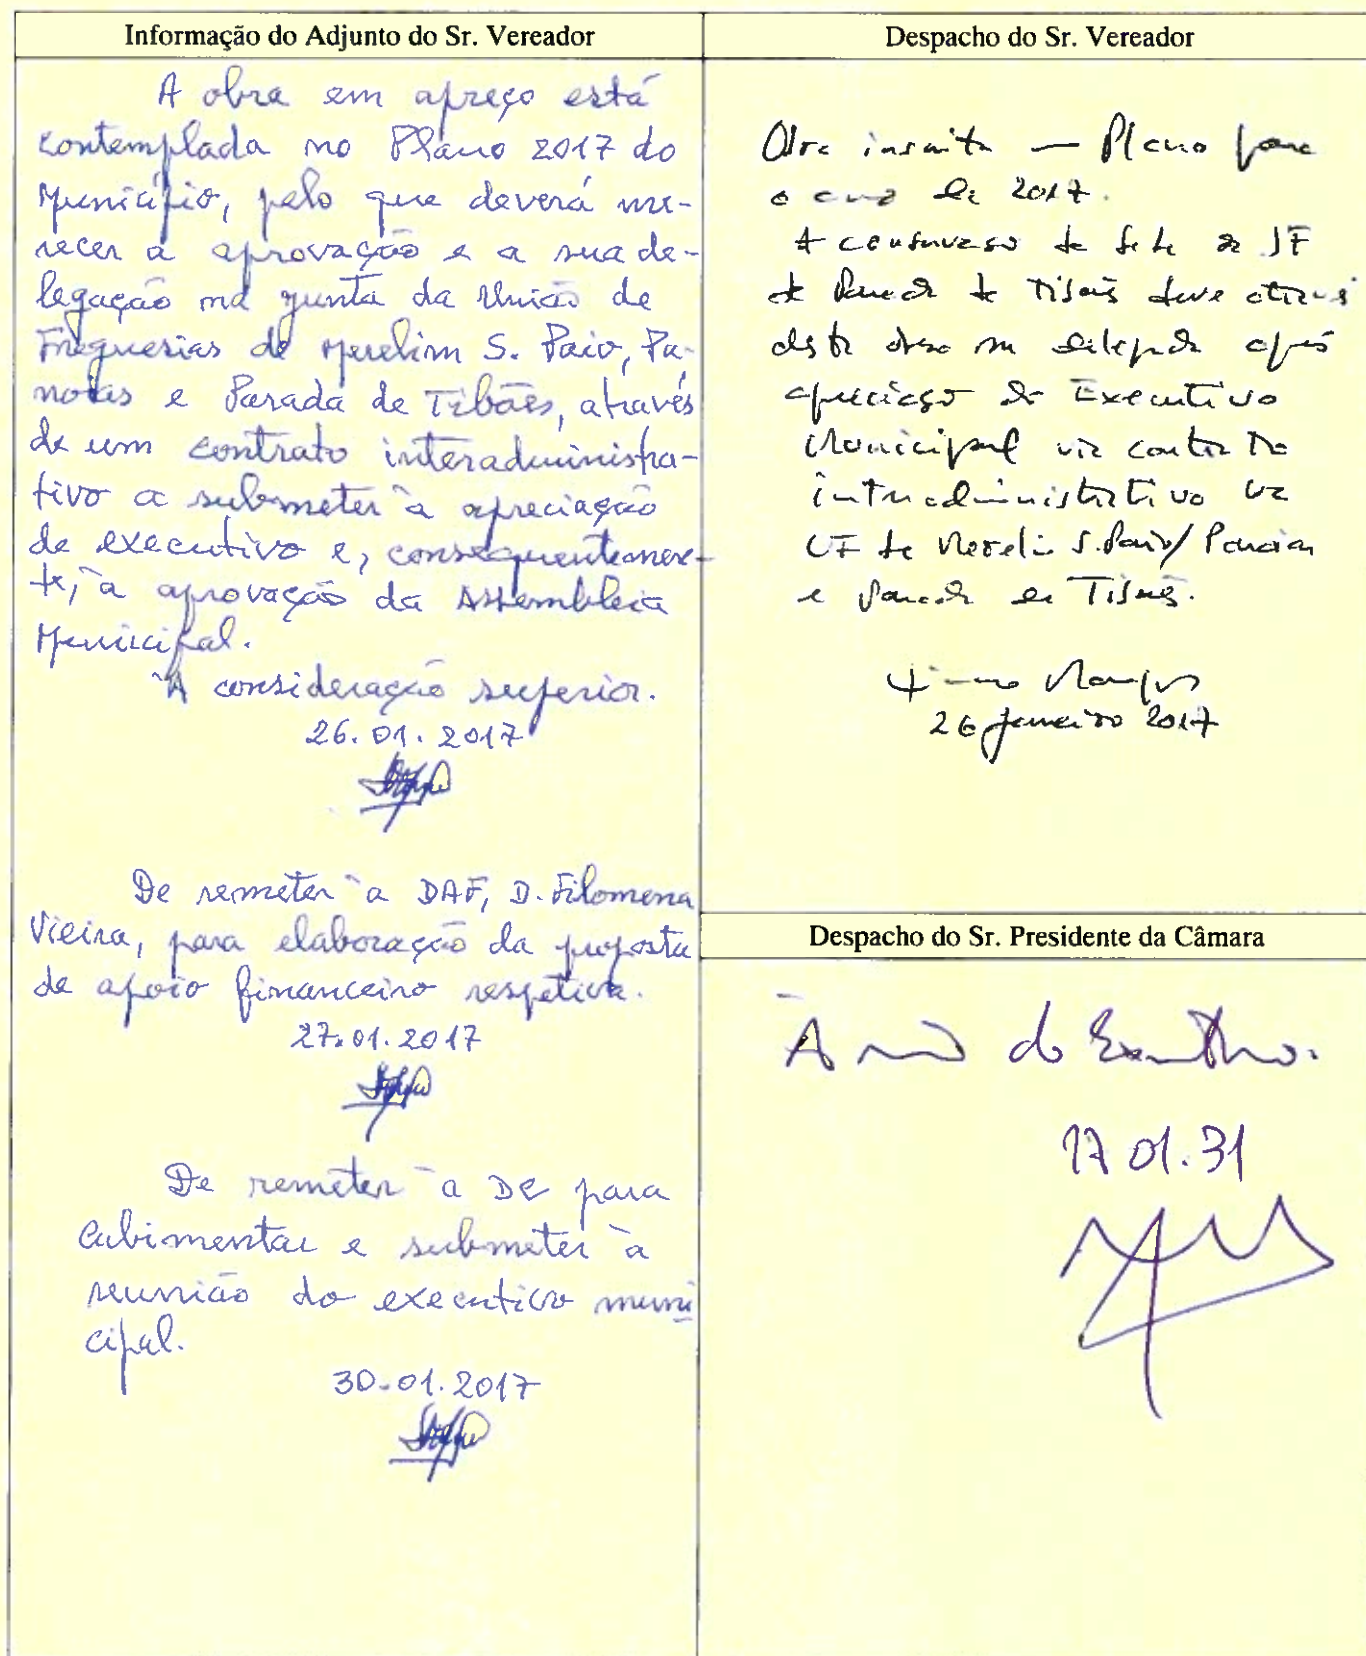 Informação do Adjunto do Sr. Vereador
A obra em apreço está
contemplada no Plano 2017 do
Município, pelo que deverá me-
recer a aprovação e a sua de-
legação na junta da União de
Freguesias de Merelim S. Paio, Pa-
noias e Parada de Tibães, através
de um contrato interadministra-
tivo a submeter à apreciação
de executivo e, consequentemen-
te, à aprovação da Assembleia
Municipal.
À consideração superior.
26.01.2017
De remeter à DAF, D. Filomena
Vieira, para elaboração da proposta
de apoio financeiro respetiva.
27.01.2017
De remeter à DC para
cabimentar e submeter à
reunião do executivo muni
cipal.
30.01.2017
Despacho do Sr. Vereador
Obra inscrita no Plano para
o ano de 2017.
A conservação da Sede da JF
de Parada de Tibães deve através
desta obra ser delegada após
apreciação do Executivo
Municipal via contrato
interadministrativo
UF de Merelim S. Paio/Panoias
e Parada de Tibães.
26 janeiro 2017
Despacho do Sr. Presidente da Câmara
À do Executivo.
17.01.31